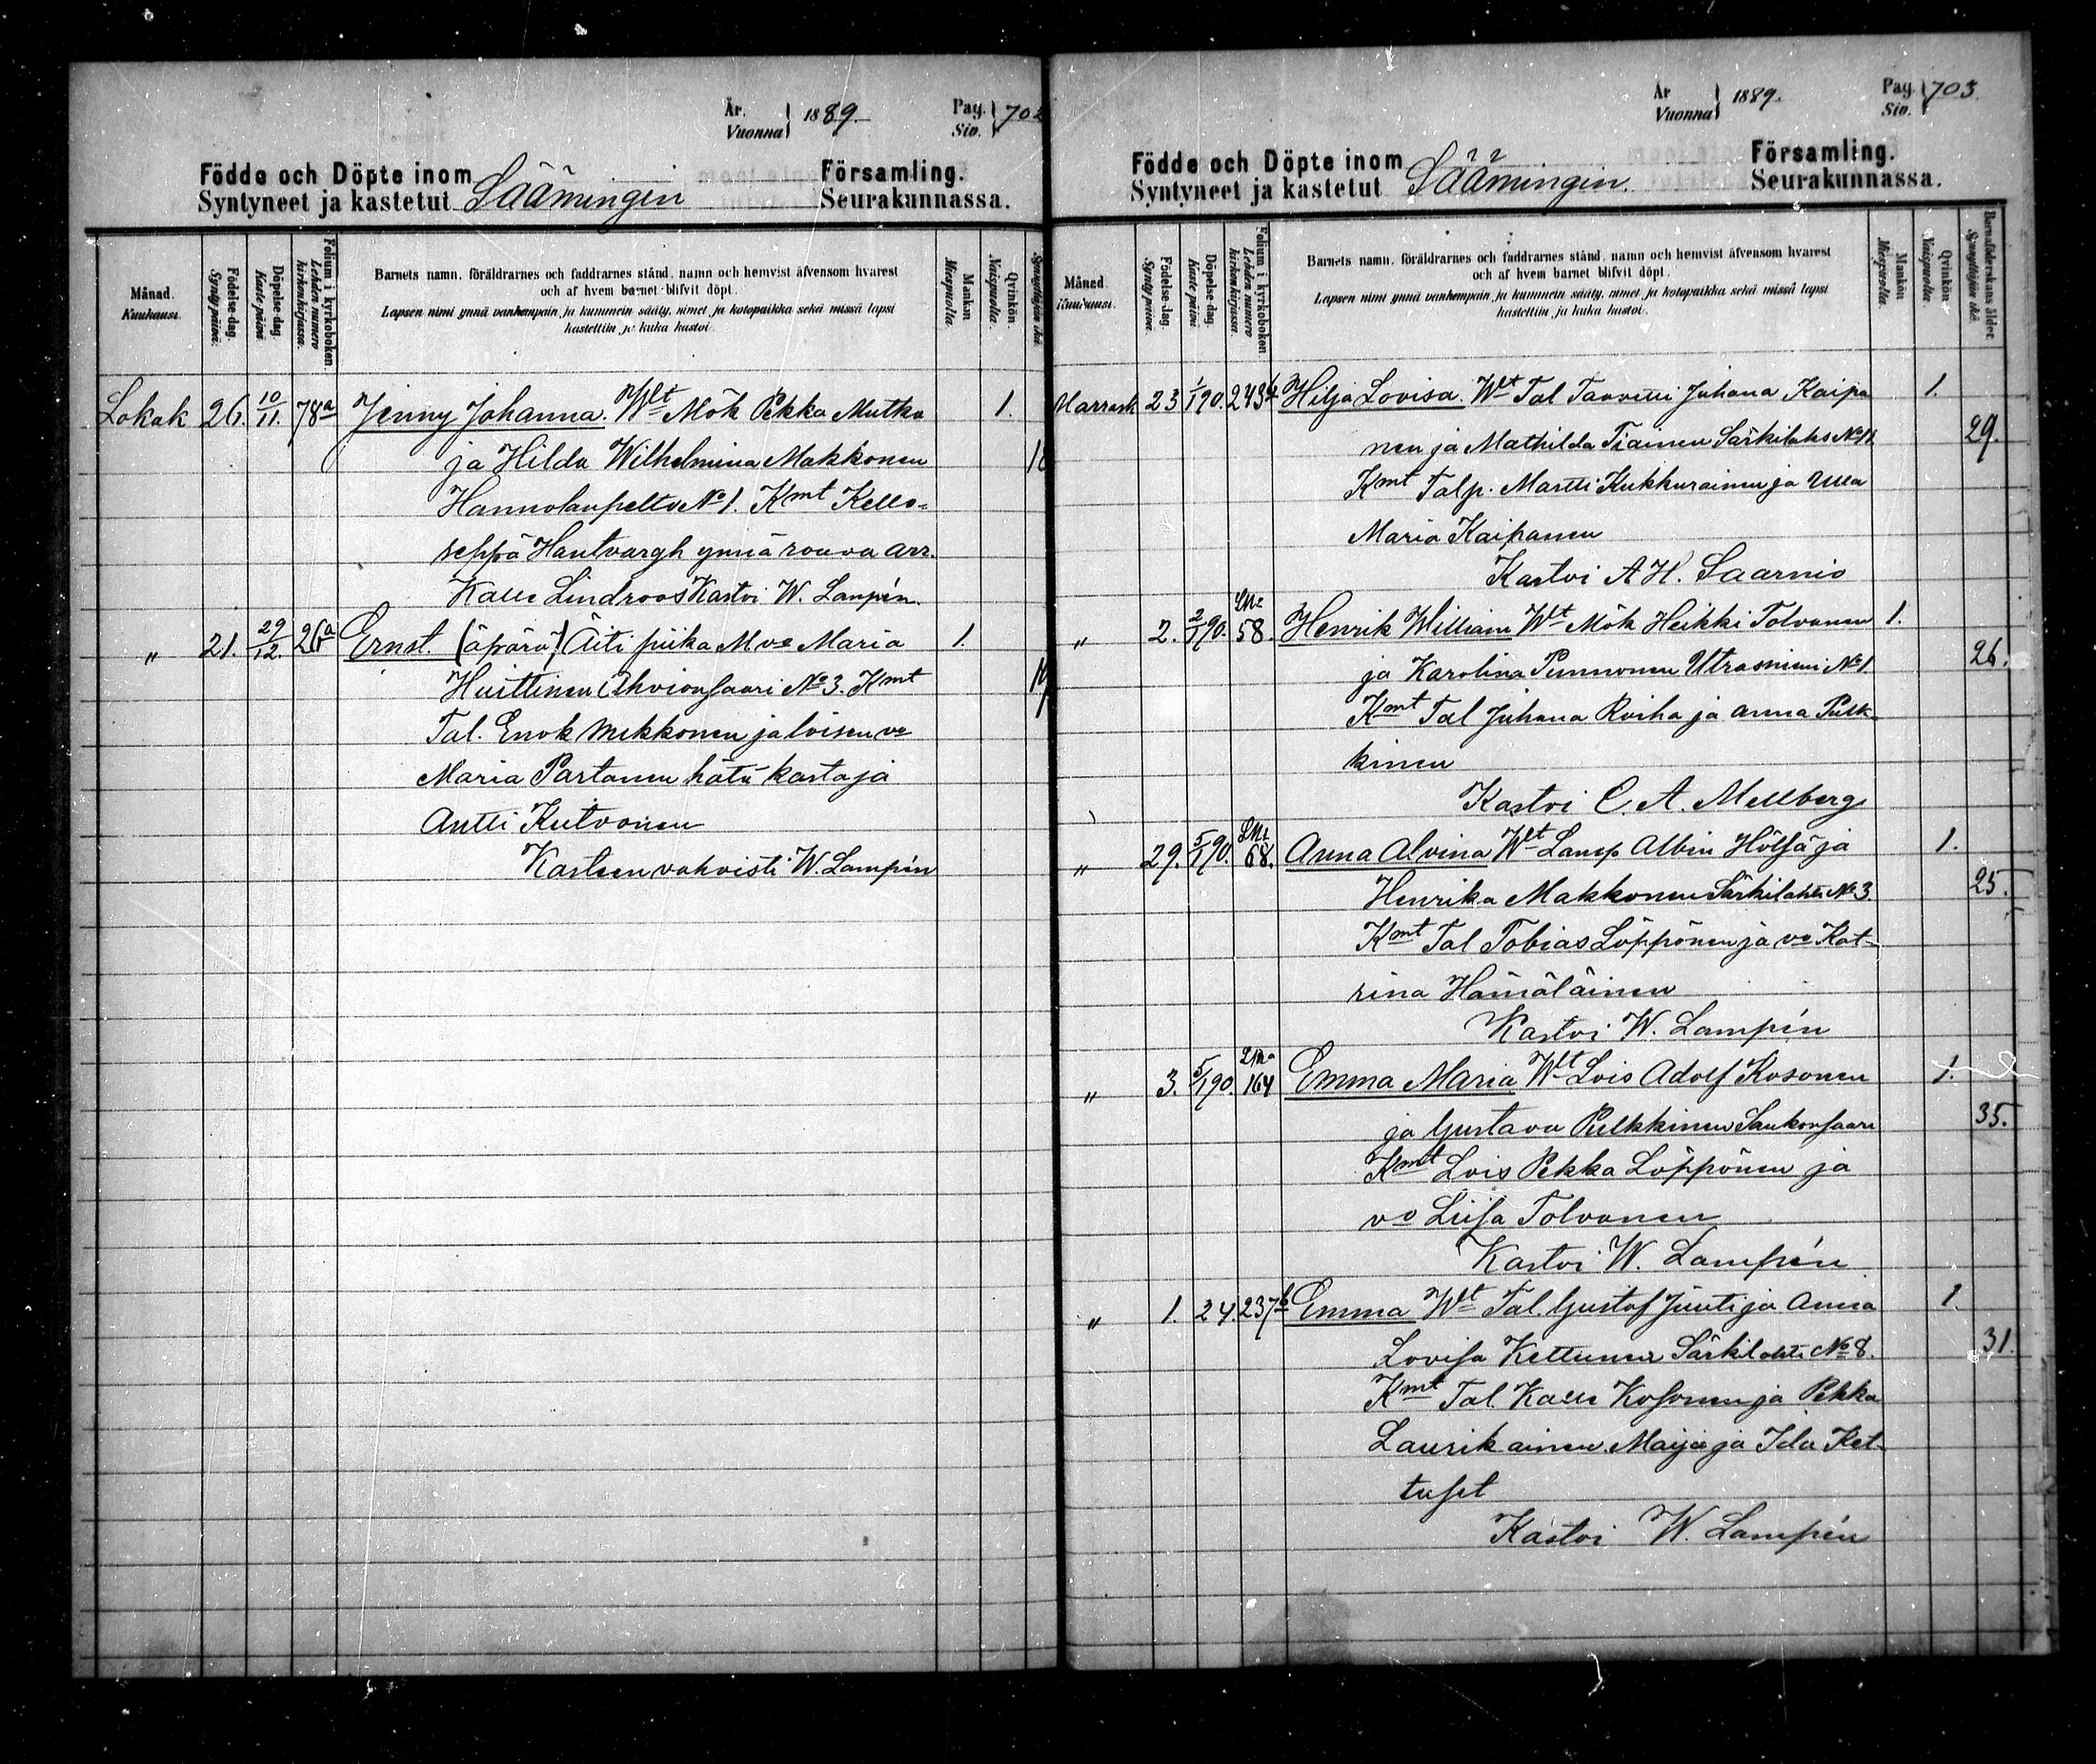 År. Vuonna 1889. Pag. Siv. 702
Födde och Döpte inom Församling.
Syntyneet ja kastetut Säämingin Seurakunnassa.
Månad. Kuukausi.
Födelse-dag. Synty päivä.
Döpelse-dag. Kaste päivä.
Folium i kyrkoboken. Lehden numero kirkonkirjassa.
Barnets namn, föräldrarnes och faddrarnes stånd, namn och hemvist äfvensom hvarest
och af hvem barnet blifvit döpt.
Lapsen nimi ynnä vanhempain ja kummein sääty, nimet ja kotopaikka sekä missä lapsi
kastettiin ja kuka kastoi.
Mankön. Miespuolta.
Qvinkön. Naispuolta.
Synnyttäjän ikä.
Lokak 26. 10/11. 78a Jenny Johanna. Wlt Mök Pekka Mutka 1.
ja Hilda Wilhelmina Makkonen
Hannolanpelto No 1. Kmt Kello-
seppä Hantvargh ynnä rouva arr.
Kalle Lindroos Kastoi W. Lampén.
" 21. 29/12. 26a Ernst. (äpärä) Äiti piika M vo Maria 1.
Huittinen Ahvionsaari No 3. Kmt
Tal. Enok Mekkonen ja loisen vo
Maria Partanen hätä kastaja
Antti Kutvonen
Kasteen vahvisti W. Lampén
År Vuonna 1889. Pag. Siv. 703.
Födde och Döpte inom Församling.
Syntyneet ja kastetut Säämingin. Seurakunnassa.
Månad. Kuukausi.
Födelse-dag. Synty päivä.
Döpelse-dag. Kaste päivä.
Folium i kyrkoboken. Lehden numero kirkonkirjassa.
Barnets namn, föräldrarnes och faddrarnes stånd, namn och hemvist äfvensom hvarest
och af hvem barnet blifvit döpt.
Lapsen nimi ynnä vanhempain ja kummein sääty, nimet ja kotopaikka sekä missä lapsi
kastettiin ja kuka kastoi.
Mankön. Miespuolta.
Qvinkön. Naispuolta.
Barnaföderskans ålder. Synnyttäjän ikä.
Marrask 23 1/1 90. 243b Hilja Lovisa. Wlt Tal Taavetti Juhana Kaipa 1.
nen ja Mathilda Tiainen Särkilaks No 11. 29.
Kmt Talp. Martti Kukkurainen ja Ulla
Maria Kaipanen
Kastoi A H. Saarnio
" 2. 2/1 90. 58. Henrik William Wlt Mök Heikki Tolvanen 1.
ja Karolina Punnonen Utrasniemi No 1. 26.
Kmt Tal Juhana Roiha ja Anna Pulk-
kinen
Kastoi C. A. Mellberg
" 29. 5/1 90. 68. Anna Alvina Wlt Lamp Albin Hölsä ja 1.
Henrika Makkonen Särkilahti No 3. 25.
Kmt Tal Tobias Löppönen ja vo Kat-
rina Hämäläinen
Kastoi W. Lampén
" 3. 5/1 90. 164 Emma Maria Wlt Lois Adolf Kosonen 1.
ja Gustava Pulkkinen Saukonsaari 35.
Kmt Lois Pekka Löppönen ja
vo Liisa Tolvanen
Kastoi W. Lampén
" 1. 24. 237b Emma Wlt Tal. Gustaf Juuti ja Anna 1.
Lovisa Kettunen Särkilahti No 8. 31.
Kmt Tal. Kalle Kosonen ja Pekka
Laurikainen. Maija ja Ida Ket-
tuset
Kastoi W. Lampén